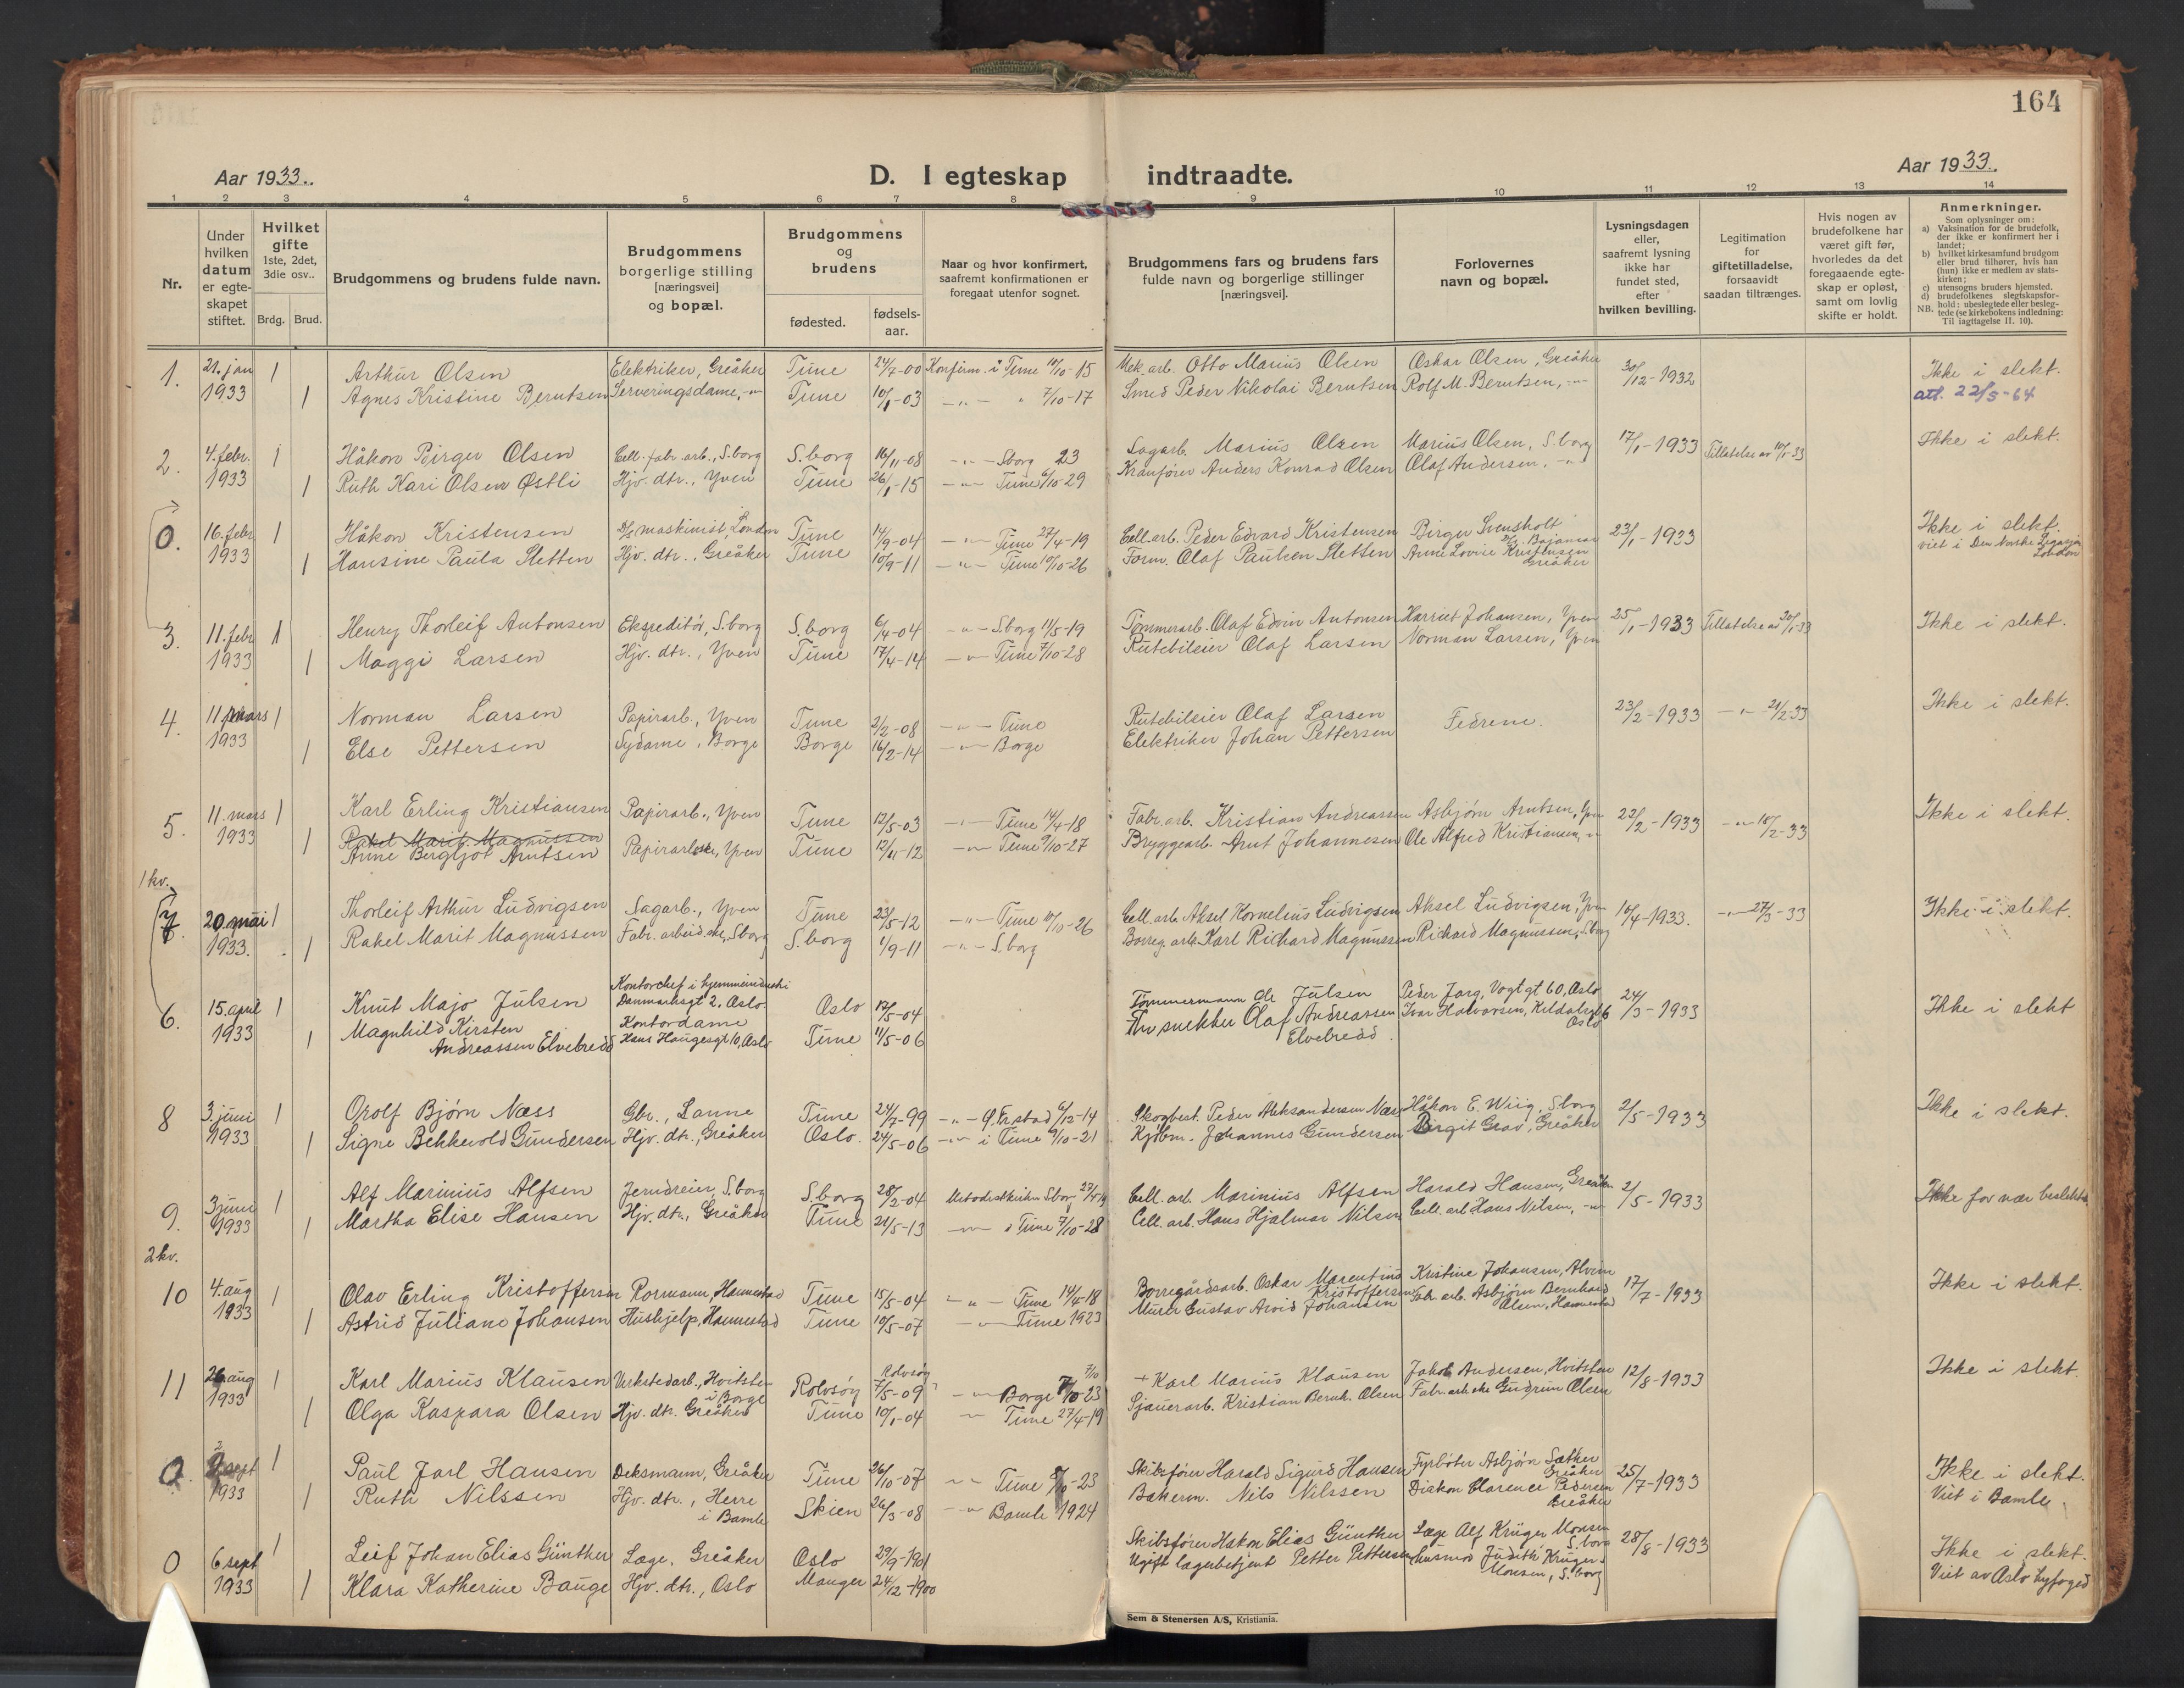 164
Aar 1933. D. I egteskap indtraadte. Aar 1933.
1 2 3 4 5 6 7 8 9 10 11 12 13 14
Nr.
Under hvilken datum er egteskapet stiftet.
Hvilket gifte 1ste, 2det, 3die osv..
Brdg. Brud.
Brudgommens og brudens fulde navn.
Brudgommens borgerlige stilling [næringsvei] og bopæl.
Brudgommens og brudens
fødested. fødsels-aar.
Naar og hvor konfirmert, saafremt konfirmationen er foregaat utenfor sognet.
Brudgommens fars og brudens fars fulde navn og borgerlige stillinger [næringsvei].
Forlovernes navn og bopæl.
Lysningsdagen eller, saafremt lysning ikke har fundet sted, efter hvilken bevilling.
Legitimation for giftetilladelse, forsaavidt saadan tiltrænges.
Hvis nogen av brudefolkene har været gift før, hvorledes da det foregaaende egteskap er opløst, samt om lovlig skifte er holdt.
Anmerkninger.
Som oplysninger om:
a) Vaksination for de brudefolk, der ikke er konfirmert her i landet;
b) hvilket kirkesamfund brudgom eller brud tilhører, hvis han (hun) ikke er medlem av statskirken;
c) utensogns bruders hjemsted.
d) brudefolkenes slegtskapsforhold: ubeslegtede eller beslegtede (se kirkebokens indledning: Til iagttagelse II. 10).
NB.
1. 21. jan 1 Arthur Olsen Elektriker, Greåker Tune 24/7-00 Konfirm. i Tune 10/10-15 Mek. arb. Otto Marius Olsen Oskar Olsen, Greåker 30/12-1932 Ikke i slekt.
1933 1 Agnes Kristine Berntsen Serveringsdame, -"- Tune 10/1-03 -"- " 7/10-17 Smed Peder Nikolai Berntsen Rolf M. Berntsen, -"- att. 22/5-64
2. 4. febr. 1 Håkon Birger Olsen Cell. fabr. arb., S.borg S.borg 16/11-08 -"- S.borg 23 Sagarb. Marius Olsen Marius Olsen, S.borg 17/1-1933 Tillatelse av 10/1-33 Ikke i slekt.
1933 1 Ruth Kari Olsen Østli Hjv. dtr., Yven Tune 26/1-15 -"- Tune 6/10-29 Kranfører Anders Konrad Olsen Olaf Andersen, -"-
0. 16. febr. 1 Håkon Kristensen D/S maskinist, London Tune 14/9-04 -"- Tune 27/4-19 Cell. arb. Peder Edvard Kristensen Birger Svensholt 23/1-1933 Ikke i slekt.
1933 1 Hansine Paula Sletten Hjv. dtr., Greåker Tune 10/9-11 -"- Tune 10/10-26 Form. Olaf Paulsen Sletten Anne Lovise Kristensen Greåker viet i Den Norske Legasjon London
3. 11. febr 1 Henry Thorleif Antonsen Ekspeditør, S.borg S.borg 6/4-04 -"- S.borg 11/5-19 Tømmerarb. Olaf Edvin Antonsen Harriet Johansen, Yven 25/1-1933 Tillatelse av 20/1-33 Ikke i slekt.
1933 1 Maggi Larsen Hjv. dtr., Yven Tune 17/4-14 -"- Tune 7/10-28 Rutebileier Olaf Larsen Norman Larsen, Yven
4. 11. mars 1 Norman Larsen Papirarb., Yven Tune 2/2-08 -"- Tune Rutebileier Olaf Larsen Fedrene. 23/2-1933 -"- 21/2-33 Ikke i slekt.
1933 1 Else Pettersen Sydame, Borge Borge 16/2-14 -"- Borge Elektriker Johan Pettersen
5. 11. mars 1 Karl Erling Kristiansen Papirarb., Yven Tune 12/5-03 -"- Tune 14/4-18 Fabr. arb. Kristian Andreassen Asbjørn Arntsen, Yven 22/2-1933 -"- 10/2-33 Ikke i slekt.
1933 1 Rakel Marit Magnussen
Anne Bergljot Arntsen Papirarbske, Yven Tune 12/11-12 -"- Tune 9/10-27 Bryggearb. Arnt Johannesen Ole Alfred Kristiansen, -"-
1 kv.
7. 20. mai 1 Thorleif Arthur Ludvigsen Sagarb., Yven Tune 23/5-12 -"- Tune 10/10-26 Cell. arb. Aksel Kornelius Ludvigsen Aksel Ludvigsen, Yven 10/4-1933. -"- 27/3-33 Ikke i slekt.
1933. 1 Rakel Marit Magnussen Fabr. arbeidske, S.borg S.borg 1/9-11 -"- S.borg Borreg. arb. Karl Richard Magnussen Richard Magnussen, S.borg
6. 15. april 1 Knut Majo Julsen Kontorchef i hjemmeindustri Danmarksgt 2. Oslo. Oslo 17/5-04 Tømmermann Ole Julsen Peder Jorg, Vogtgt 60, Oslo 24/3-1933 Ikke i slekt
1933 1 Magnhild Kirsten Andreassen Elvebredd Kontordame Hans Haugesgt 10, Oslo Tune 11/5-06 snekker Olaf Andreassen Elvebredd. Ivar Halvorsen, Oslo
8 3. juni 1 Orolf Bjørn Næss Gbr., Lanne Tune 24/7-99 -"- Gl. Fr.stad 6/12-14 Skogbest. Peder Aleksandersen Næss Håkon E. Wiig, S.borg 2/5-1933 Ikke i slekt.
1933 1 Signe Behkevold Gundersen Hjv. dtr., Greåker Oslo. 24/5-06 -"- i Tune 9/10-21 Kjøbm. Johannes Gundersen Birgit Grav, Greåker
9. 3 juni 1 Alf Marinius Alfsen Jerndreier, S.borg S.borg 28/2-04 Metodistkirken S.borg 27/4-19 Cell. arb. Marinius Alfsen Harald Hansen, Greåker 2/5-1933 Ikke for nær beslektet
1933 1 Martha Elise Hansen Hjv. dtr., Greåker Tune 24/5-13 -"- i Tune 7/10-28 Cell. arb. Hans Hjalmar Nilsen Cell. arb. Hans Nilsen, -"-
2 kv.
10 4. aug 1 Olav Erling Kristoffersen Rormann, Hannestad Tune 15/5-04 -"- Tune 14/4-18 Borregårdsarb. Oskar Marentius Kristoffersen Kristine Johansen, Alvim 17/7-1933 Ikke i slekt.
1933 1 Astrid Juliane Johansen Hushjelp, Hannestad Tune 10/5-07 -"- Tune 1923 Murer Gustav Arvid Johansen Fabr. arb. Asbjørn Bernhard Olsen, Hannestad
11 26 aug 1 Karl Marius Klausen Verkstedarb., Hvitsten i Borge Rolvsøy 7/5-09 Rolvsøy -"- Borge 7/10-23 + Karl Marius Klausen Jakob Andersen, Hvitsten 12/8-1933 Ikke i slekt.
1933 1 Olga Kaspara Olsen Hjv. dtr. Greåker Tune 10/1-04 -"- Tune 27/4-19 Sjauerarb. Kristian Bernh. Olsen Fabr. arbske Gudrun Olsen
0. 2 sept 1 Paul Jarl Hansen Deksmann, Greåker Tune 26/10-07 -"- Tune 7/10-23 Skibsfører Harald Sigurd Hansen Fyrbøter Asbjørn Sæther Greåker 25/7-1933 Ikke i slekt.
1933 1 Ruth Nilssen Hjv. dtr., Herre i Bamle Skien 26/3-08 -"- Bamle 1924 Bakerm. Nils Nilssen Diakon Clarence Pedersen Greåker Viet i Bamle
0 6. sept 1 Leif Johan Elias Günther Læge, Greåker Oslo 29/9-1901 Skibsfører Hakon Elias Günther Læge Alf Krüger Monsen S.borg 28/8-1933 Ikke i slekt.
1933 1 Klara Katherine Bauge Hjv. dtr., Oslo Manger 24/12-1900 Ugift lagerbetjent Petter Pettersen Husmor Judith Krüger-Monsen, S.borg Viet av Oslo byfoged
Sem & Stenersen A/S, Kristiania.